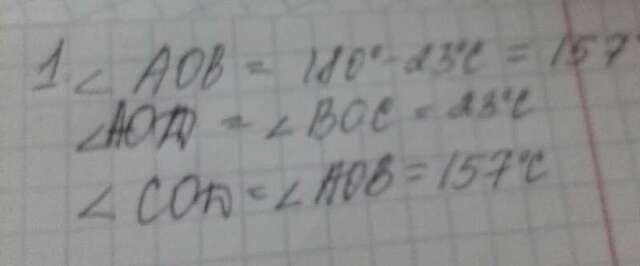 1. ∠ AOB = 180° - 23°C = 157°
∠AOD = ∠ BOC = 23°C
∠ COD = ∠ AOB = 157°C